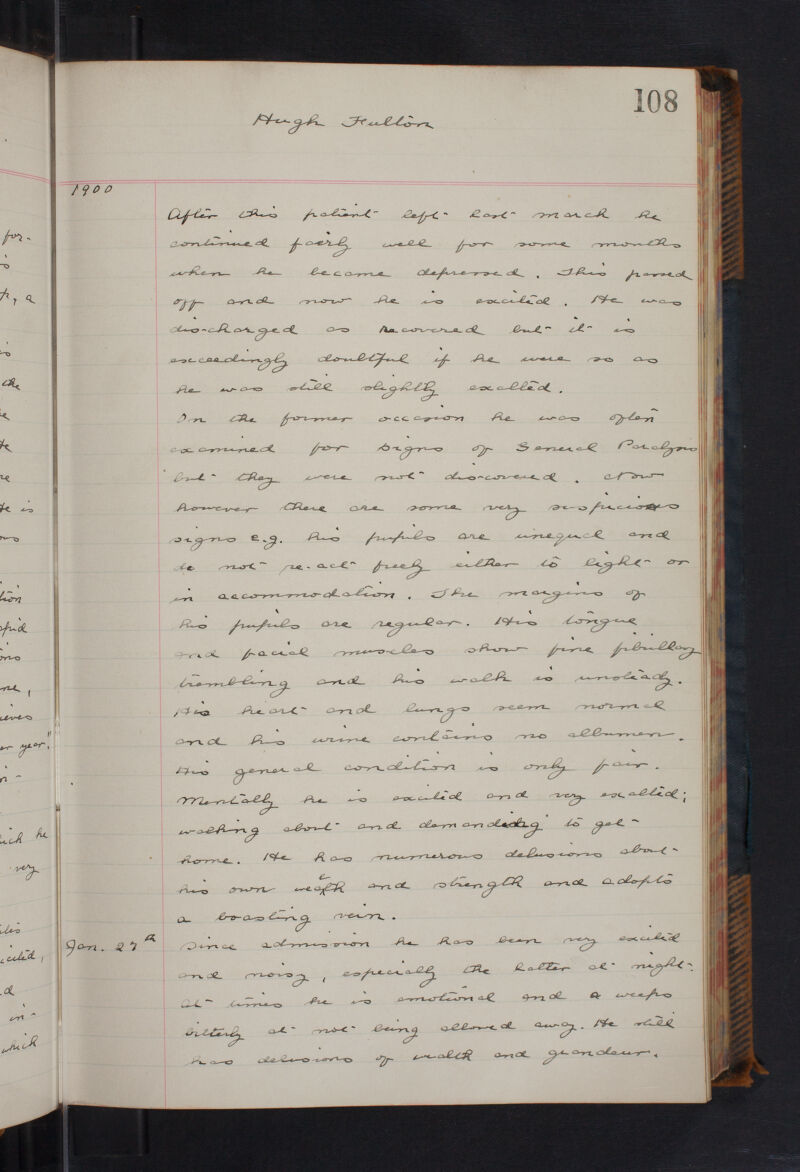 108
Hugh Fulton
1900
After this patient left last March he
continued fairly well for some months
when he became depressed. This passed
off and now he is excited. He was
discharged as recovered but it is
exceedingly doubtful if he were so as
he was still slightly exalted.
On the former occasion he was often
examined for signs of General Paralysis
but they were not discovered. Now
however there are some very suspicious
signs e.g. his pupils are unequal and
do not re-act freely either to light or
in accommodation. The margins of
his pupils are regular. His tongue
and facial muscles show fine fibrillary
trembling and his walk is unsteady.
His heart and lungs seem normal
and his urine contains no albumen.
His general condition is only fair.
Mentally he is excited and very exalted;
walking about and demanding to get
home. He has numerous delusions about
his own wealth and strength and adopts
a boasting vein.
Jan. 27th Since admission he has been very excited
and noisy, especially the latter at night.
At times he is emotional and weeps
bitterly at not being allowed away. He still
has delusions of wealth and grandeur.